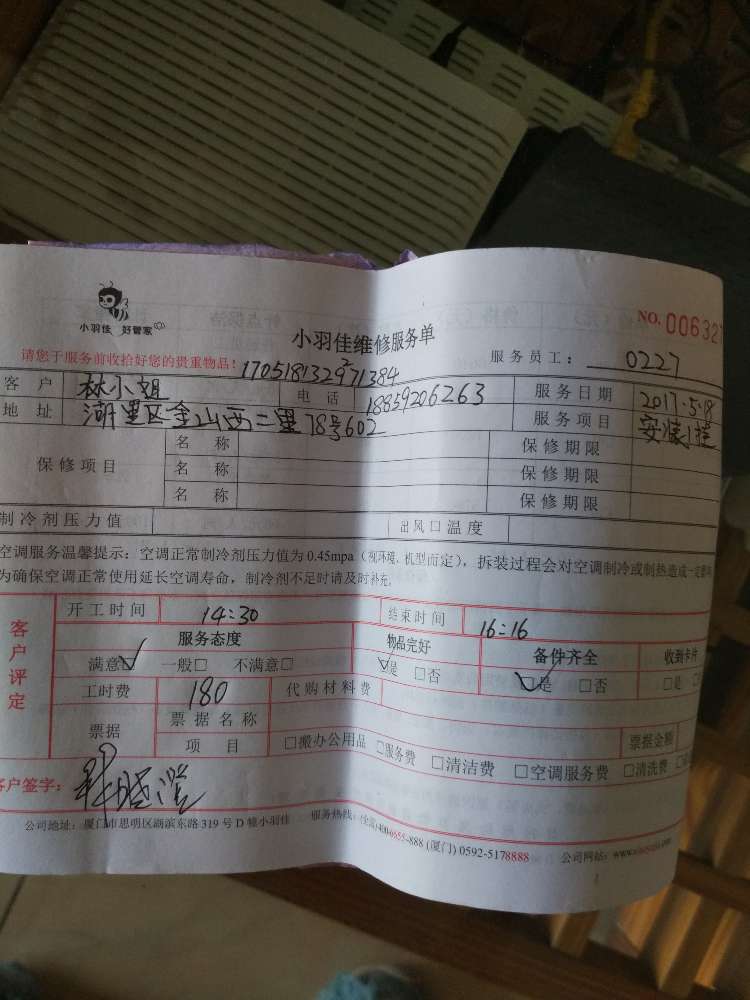 小羽佳 好管家
NO. 006327
小羽佳维修服务单
请您于服务前收拾好您的贵重物品！
服务员工： 0227
客户 林小姐 电话 18859206263 服务日期 2017.5.18
地址 湖里区金山西二里78号602 服务项目 安装1挂
保修项目 名称 保修期限
名称 保修期限
名称 保修期限
制冷剂压力值 出风口温度
空调服务温馨提示：空调正常制冷剂压力值为0.45mpa（视环境、机型而定），拆装过程会对空调制冷或制热造成一定影响
为确保空调正常使用延长空调寿命，制冷剂不足时请及时补充.
客户评定
开工时间 14:30 结束时间 16:16
服务态度 物品完好 备件齐全 收到卡片
满意☑ 一般□ 不满意□ ☑是 □否 ☑是 □否 □是
工时费 180 代购材料费
票据 票据名称 票据金额
项目 □搬办公用品 □服务费 □清洁费 □空调服务费 □清洗费
客户签字：
公司地址：厦门市思明区湖滨东路319号D幢小羽佳 服务热线：(全国)400-0655-888 (厦门) 0592-5178888 公司网站：